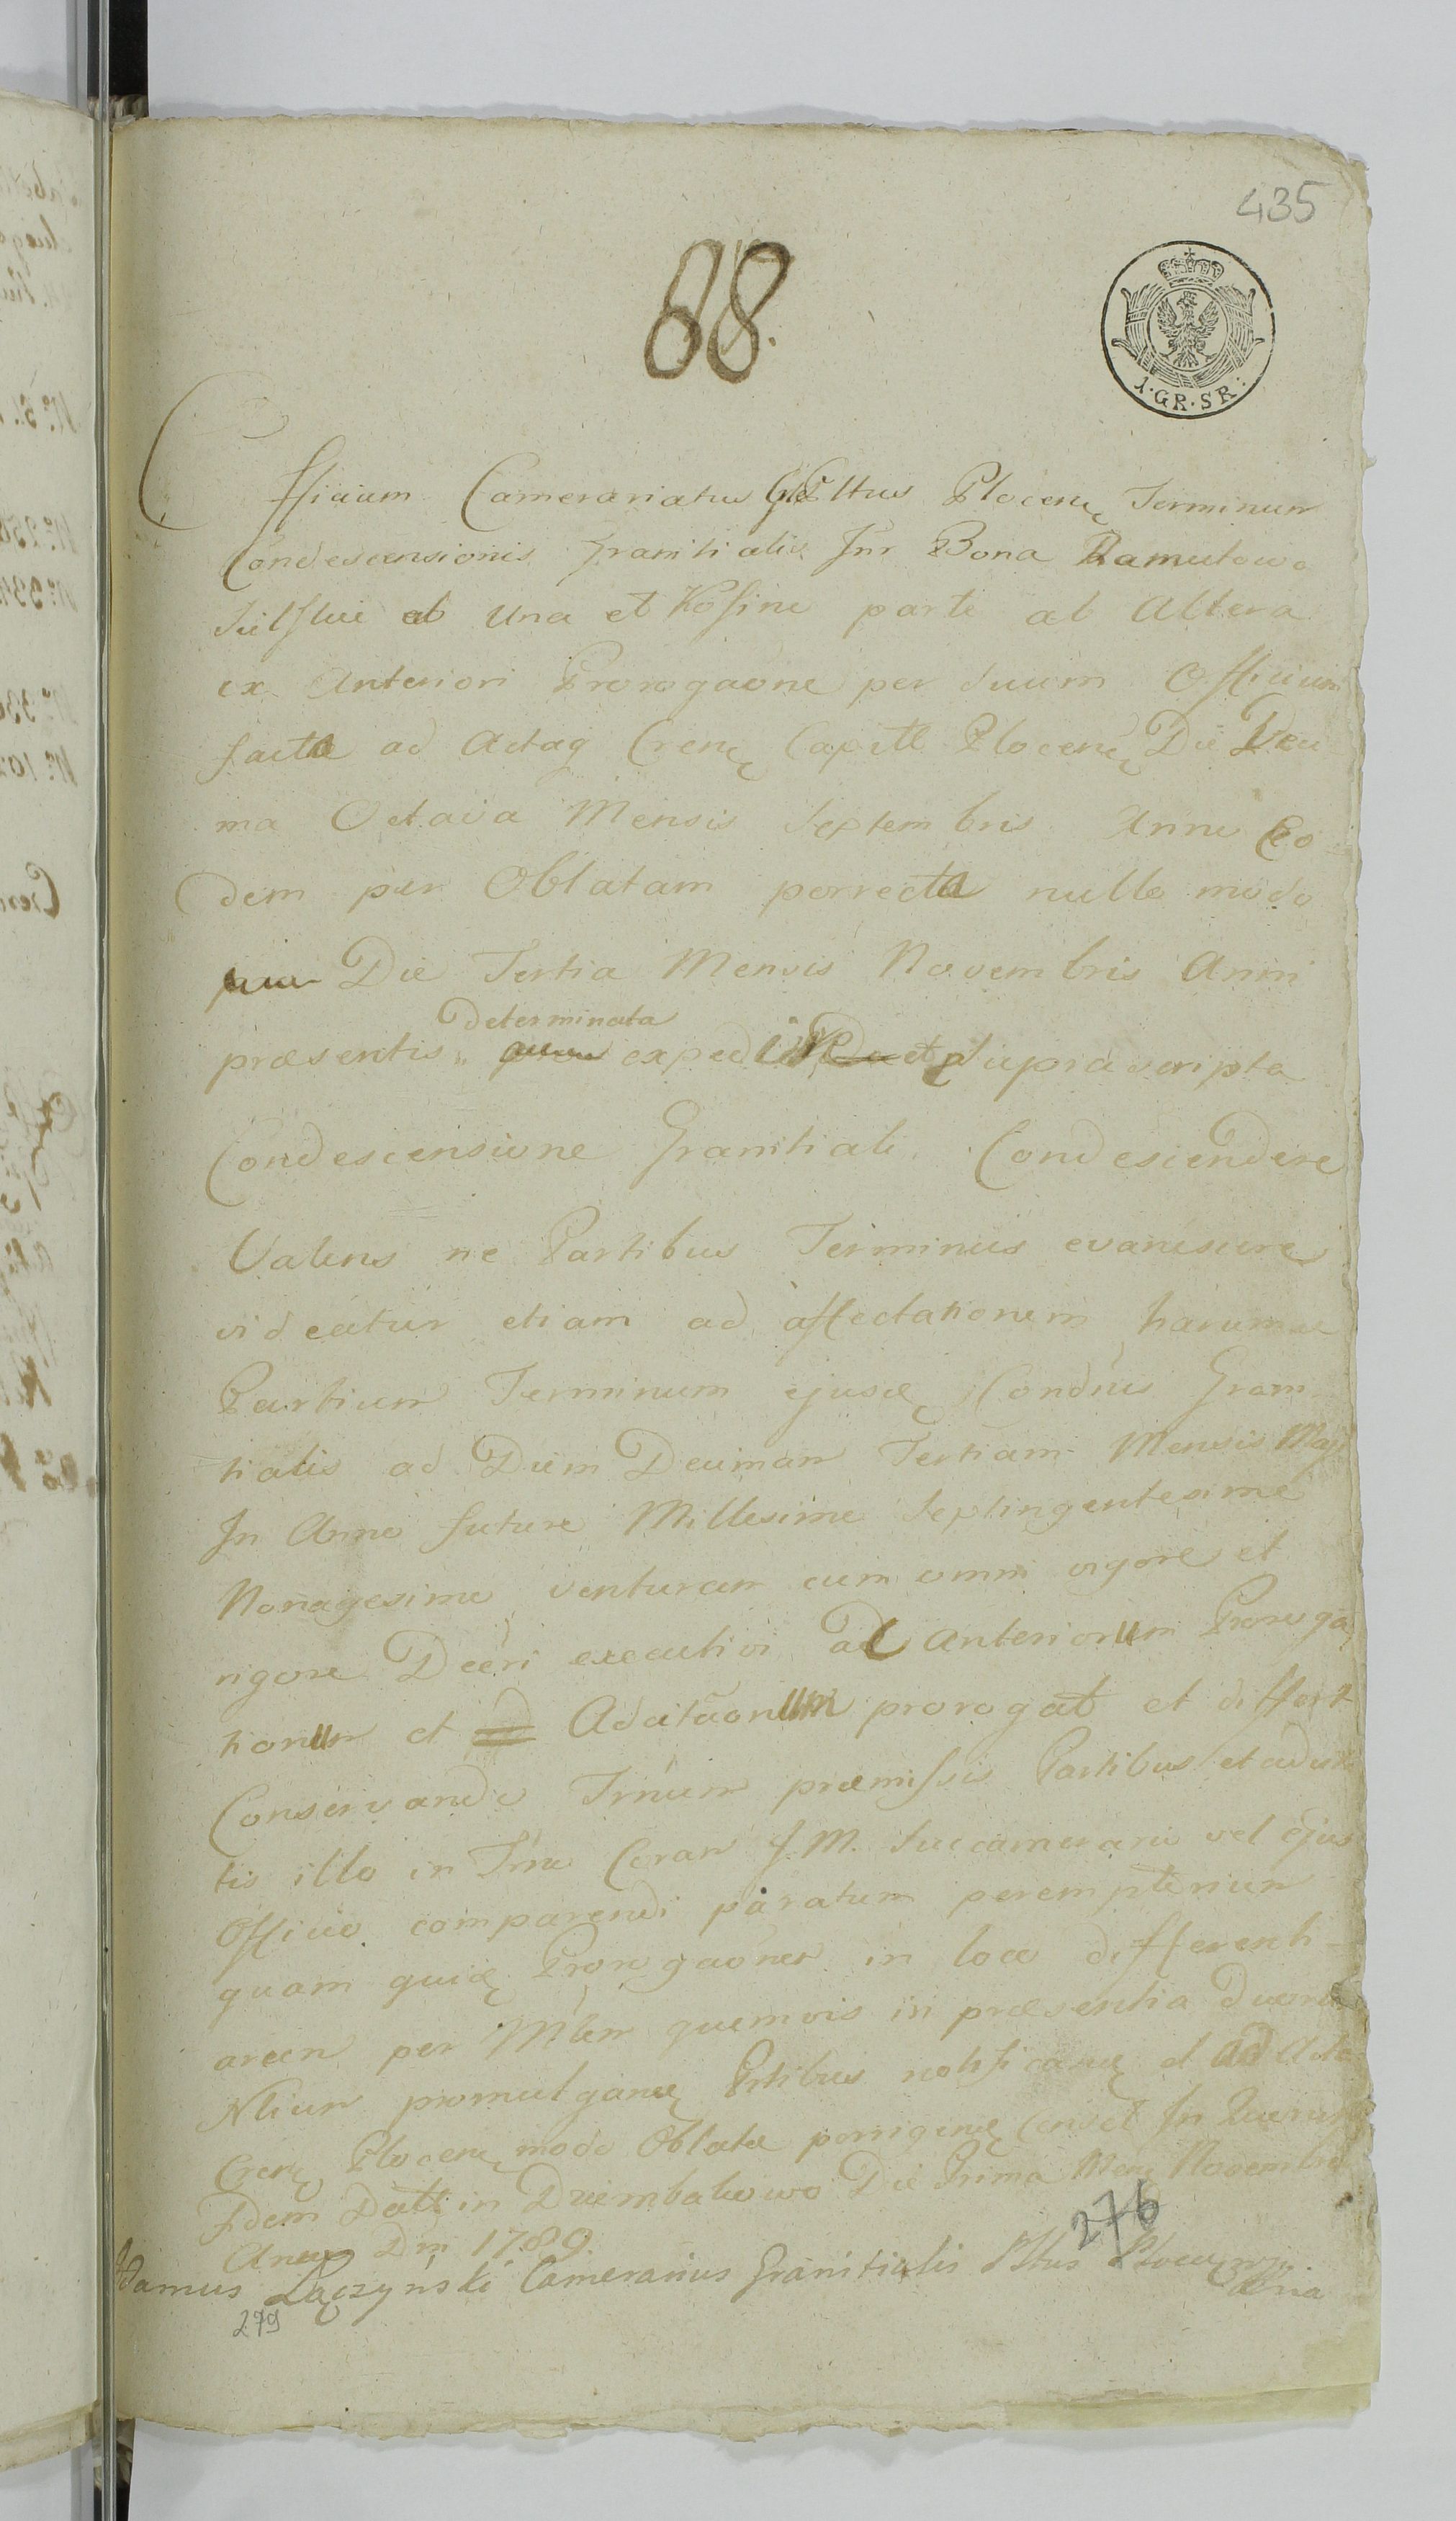 435
88.
1·GR·SR:
Officium Camerariatus Pltus Plocens Terminum
Condescensionis Granitialis Inr Bona Ramutowo
ab una et Kosine parte ab altera
ex Anteriori Prorogaone per suum Officium
facta ad Acta Crens Capitl Plocens Die Deci
ma Octava Mensis Septembris Anni Eo=
dem per Oblatam porrecta nullo modo
Die Tertia Mensis Novembris Anni
Determinata
præsentis supra scripta
Condescensione Granitiali Condescendere
Valens ne Partibus Terminus evanescere
videatur etiam ad affectationem harum
Partium Terminum ejusd Condnis Grani
tialis ad Diem Decimam Tertiam Mensis Maji
In Anno futuro Millesimo Septingentesimo
Nonagesimo venturam cum omni vigore et
rigore Decri executivi ac anteriorum Proroga
tionum et Adcitaonum prorogat et differt
Conservando Trnum præmissis Partibus et
tis illo in Trno Coram J. M. Succamerario vel ejus
Officio comparendi paratum peremptorium
quam quid Prorogaonem in loco differenti
arum per Mlem quemvis in præsentia
Nlium promulgand Ptibus notificand et ad Acta
Crens Plocens modo Oblatæ porrigend censet In Quorum
Fidem Datt in Dziembakowo Die Prima Mens Novembris
Anno Dni 1789.
276
Adamus Łączyński Camerarius Granitialis Pltus
279